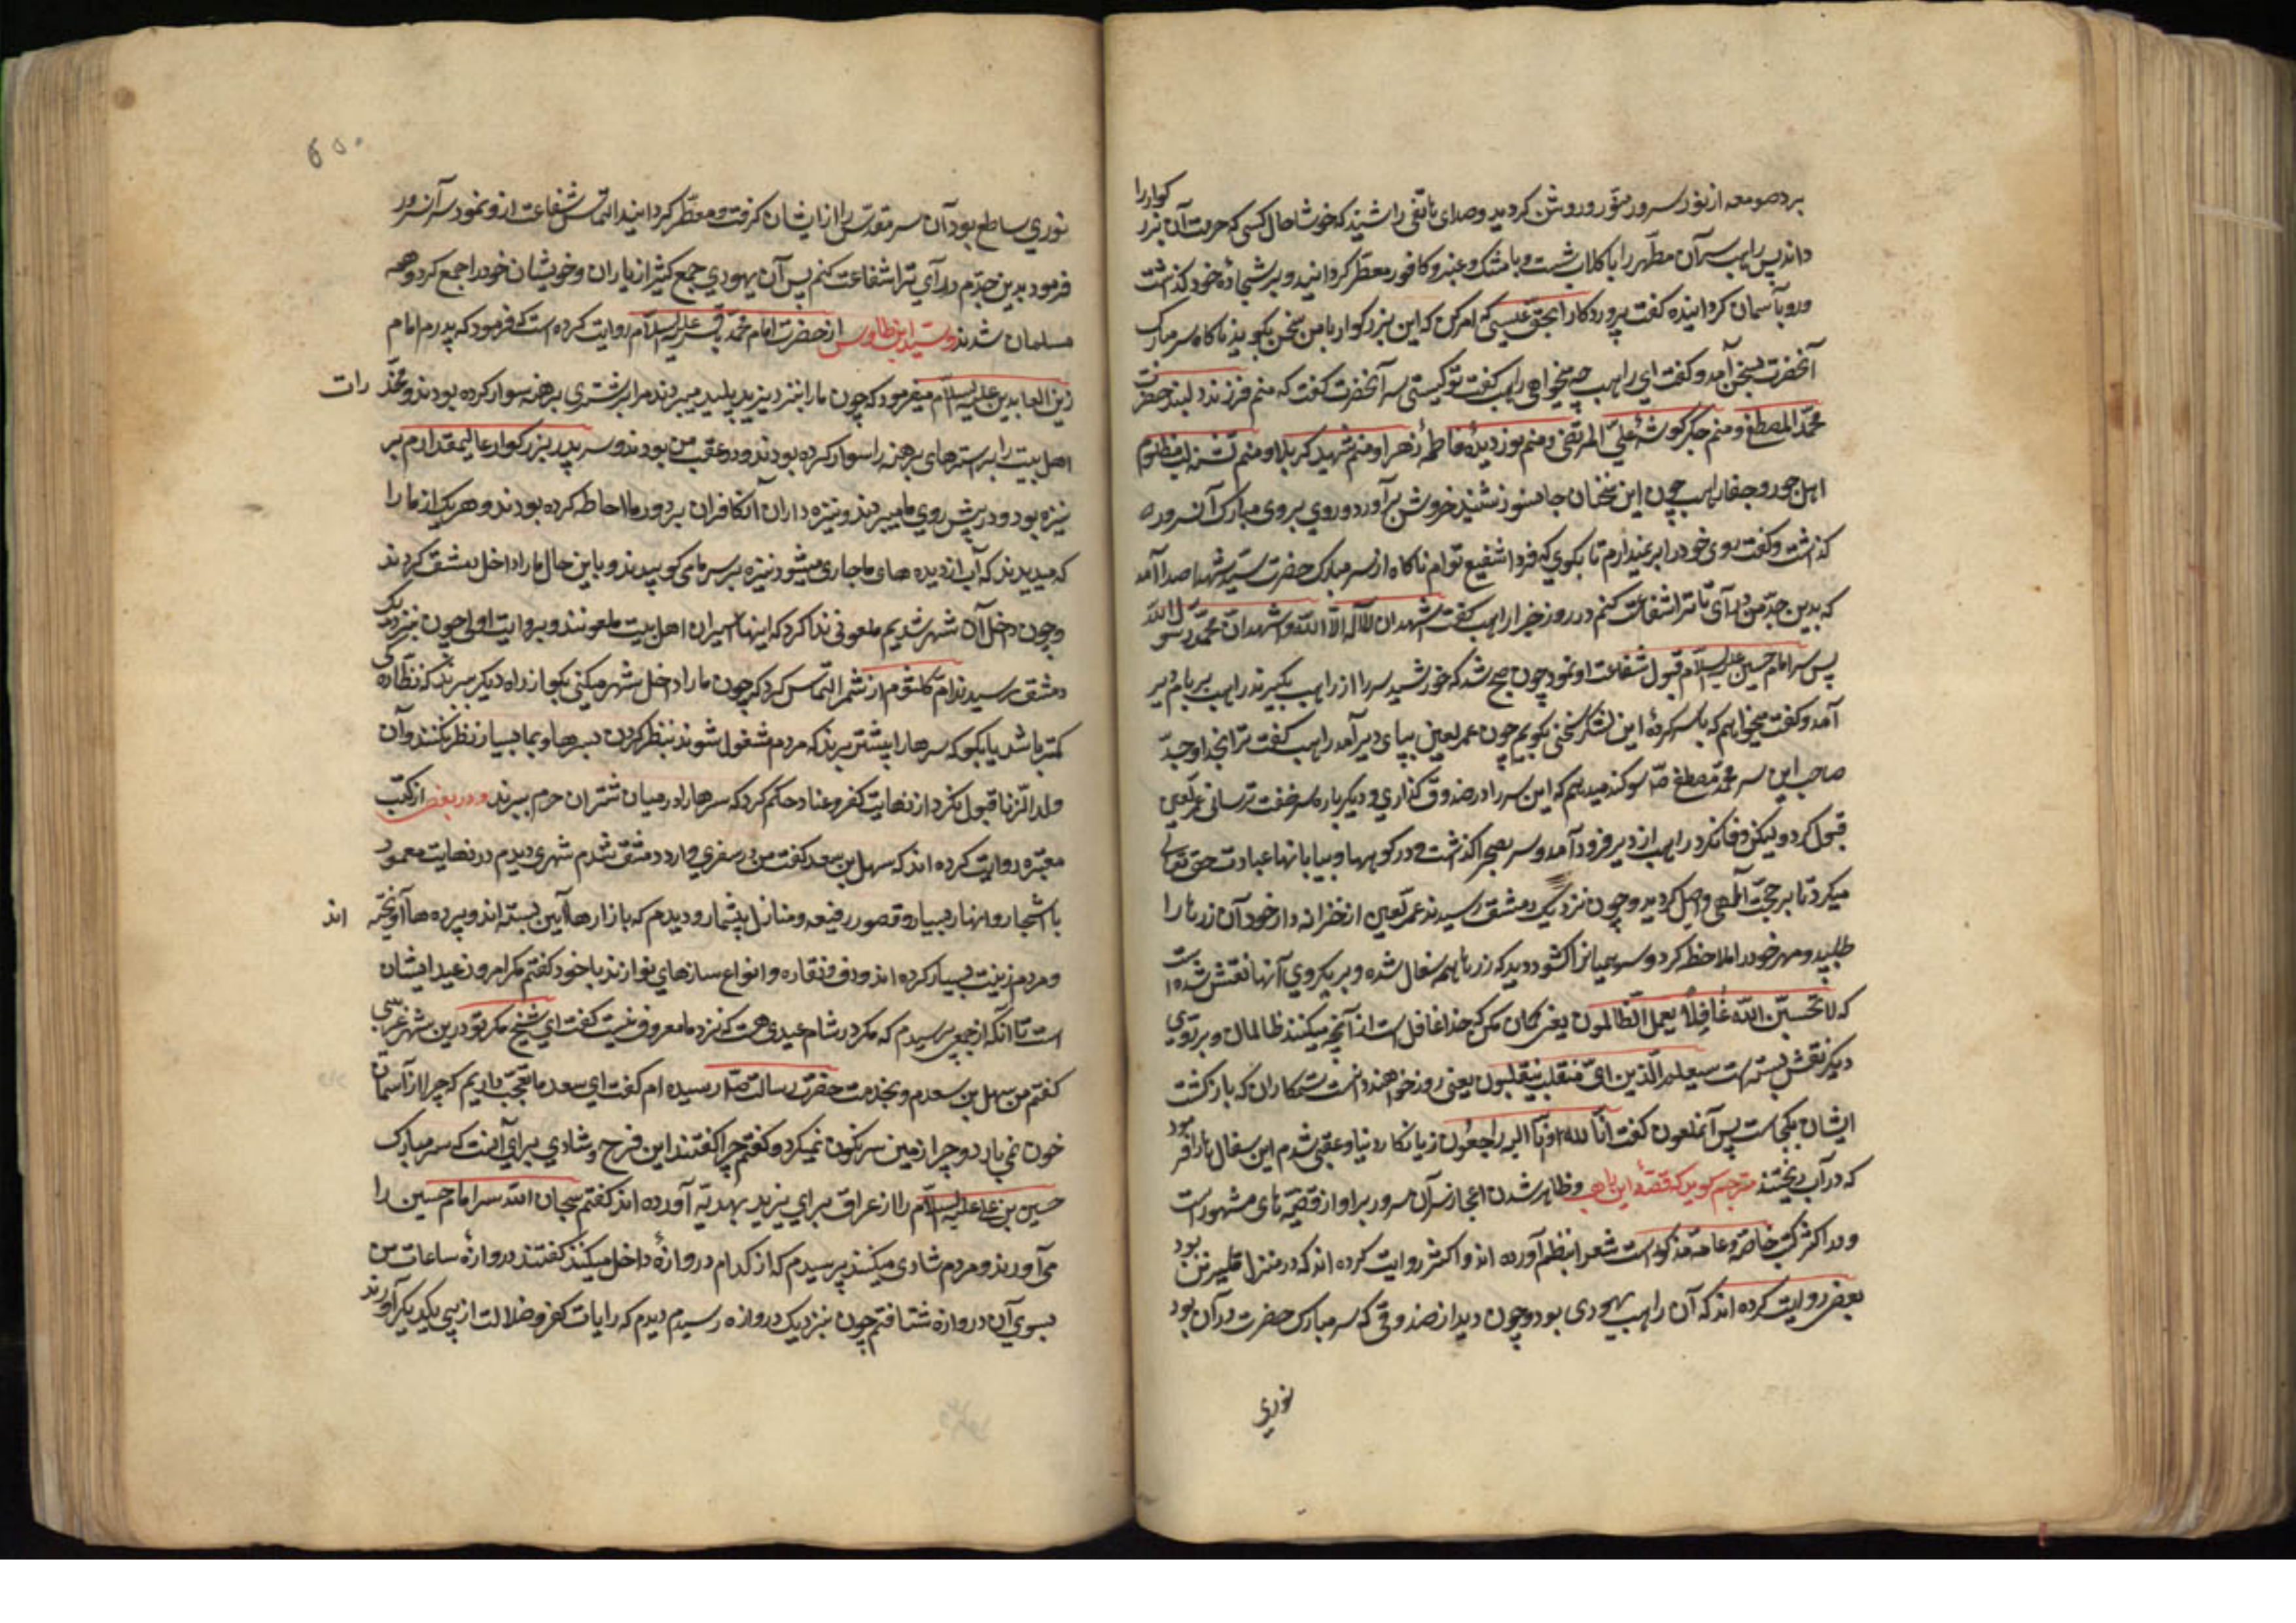 برد صومعه از نور سرور منور و روشن کردید و صدای هاتفی را شنید که خوشا حال کسی که حرمت آن بزر کوار را
داند پس راهب سر آن مطهر را با کلاب شست و با مشک و عنبر و کافور معطر کردانید و بر سجادهٔ خود کذاشت
و رو بآسمان کردانیده کفت پروردکارا بحق عیسی که امر کن که این بزرکوار با من سخن بکوید ناکاه سر مبارک
آنحضرت بسخن آمد و کفت ای راهب چه میخواهی راهب کفت تو کیستی سر آنحضرت کفت که منم فرزند دلبند حضرت
محمد المصطفی و منم جکر کوشهٔ علی المرتضی و منم نور دیدهٔ فاطمهٔ زهرا و منم شهید کربلا و منم تشنه لب مظلوم
اهل جور و جفا راهب چون این سخنان جانسوز شنید خروش برآورد و روی بر روی مبارک آنسرور
کذاشت و کفت روی خود را برنمیدارم تا بکوی که فردا شفیع توام ناکاه از سر مبارک حضرت سید شهدا صدا آمد
که بدین جد من درآی تا ترا شفاعت کنم در روز جزا راهب کفت اشهد ان لا اله الا الله و اشهد ان محمد رسول الله
پس سر امام حسین علیه السلام قبول شفاعت او نمود چون صبح شد که خورشید سر را از راهب بکیرند راهب بر بام دیر
آمد و کفت میخواهم که با سرکردهٔ این لشکر سخنی بکویم چون عمر لعین بپای دیر آمد راهب کفت ترا بخدا و جد
صاحب این سر محمد مصطفی ص سوکند میدهم که این سر را در صندوق کذاری و دیکر باره سر خفت نرسانی عمر لعین
قبول کرد و لیکن وفا نکرد راهب از دیر فرود آمد و سر بصحرا کذاشت و در کوهها و بیابانها عبادت حق تعالی
میکرد تا برحمت الهی واصل کردید و چون نزدیک دمشق رسیدند عمر لعین از خزانه دار خود آن زرها را
طلبید و مهر خود را ملاحظه کرد و سر همیانرا کشود دید که زرها همه سفال شده و بر یکروی آنها نقش شده است
که لا تحسبن الله غافلا یعمل الظالمون یعنی کمان مکن که خدا غافلست از آنچه میکنند ظالمان و بر روی
دیکر نقش بسته است سیعلم الذین ای منقلب ینقلبون یعنی زود خواهند دانست ستمکاران که بازکشت
ایشان بکجاست پس آنملعون کفت انا لله و انا الیه راجعون زیانکار دنیا و عقبی شدم این سفال ها را فرمود
که در آب ریختند مترجم کوید که قصهٔ این راهب و ظاهر شدن اعجاز سر آن سرور بر او از قصه های مشهور است
و در اکثر کتب خاصه و عامه مذکور است شعرا بنظم آورده اند و اکثر روایت کرده اند که در منزل قنسرین بود
بعضی روایت کرده اند که آن راهب یهودی بود و چون دید از صندوقی که سر مبارک حضرت در آن بود
نوری
نوری ساطع بود آن سر مقدس را از ایشان کرفت و معطر کردانید التماس شفاعت از و نمود سر آنسرور
فرمود بدین جدم درآی ترا شفاعت کنم پس آن یهودی جمع کثیر از یاران و خویشان خود را جمع کرد و همه
مسلمان شدند و سید ابن طاوس از حضرت امام محمد باقر علیه السلام روایت کرده است که فرمود که پدرم امام
زین العابدین علیه السلام میفرمود که چون ما را بنزد یزید پلید میبردند مرا بر شتری برهنه سوار کرده بودند و مخد رات
اهل بیت را بر استرهای برهنه را سوار کرده بودند و در عقب من بودند و سر پدر بزرکوار عالیمقدارم بر
نیزه بود و در پیش روی ما میبردند و نیزه داران آنکافران بر دور ما احاطه کرده بودند و هر یک از ما را
که میدیدند که آب از دیده های ما جاری میشود نیزه بر سر ما می کوبیدند و باین حال ما را داخل دمشق کردند
و چون داخل آن شهر شدیم ملعونی ندا کرد که اینها اسیران اهل بیت ملعونند و بروایت اولی چون نزدیک
دمشق رسیدند ام کلثوم از شمر التماس کرد که چون ما را داخل شهر میکنی بکو از راه دیکر ببرند که نظاره کی
کمتر باشد یا بکو که سرها را پیشتر برند که مردم مشغول شوند بنظر کردن سرها و بما بسیار نظر نکنند و آن
ولد الزنا قبول نکرد از نهایت کفر و عناد حکم کرد که سرها را در میان شتران حرم ببرند و در بعضی از کتب
معتبره روایت کرده اند که سهل بن سعد کفت من در سفری وارد دمشق شدم شهری دیدم در نهایت معمور
با اشجار و انهار بسیار و قصور رفیعه و منازل بیشمار و دیدم که بازارها آیین بسته اند و پرده ها آویخته اند
و مردم زینت بسیار کرده اند و دف و نقاره و انواع سازهای نوازند با خود کفتم مکر امروز عید ایشان
است تا آنکه از جمعی پرسیدم که مکر در شام عیدی هست که نزد ما معروف نیست کفت ای شیخ مکر تو درین شهر غریبی
کفتم من سهل بن سعدم و بخدمت حضرت رسالت ص رسیده ام کفت ای سعد ما تعجب داریم که چرا از آسمان
خون نمی بارد و چرا زمین سرنکون نمیکردد کفتم چرا کفتند این فرح و شادی برای آنست که سر مبارک
حسین بن علی علیه السلام را از عراق برای یزید بهدیه آورده اند کفتم سبحان الله سر امام حسین را
می آورند و مردم شادی میکنند پرسیدم که از کدام دروازهٔ داخل میکنند کفتند دروازهٔ ساعات من
بسوی آن دروازه شتافتم چون بنزدیک دروازه رسیدم دیدم که رایات کفر و ضلالت از پی یکدیکر آوردند